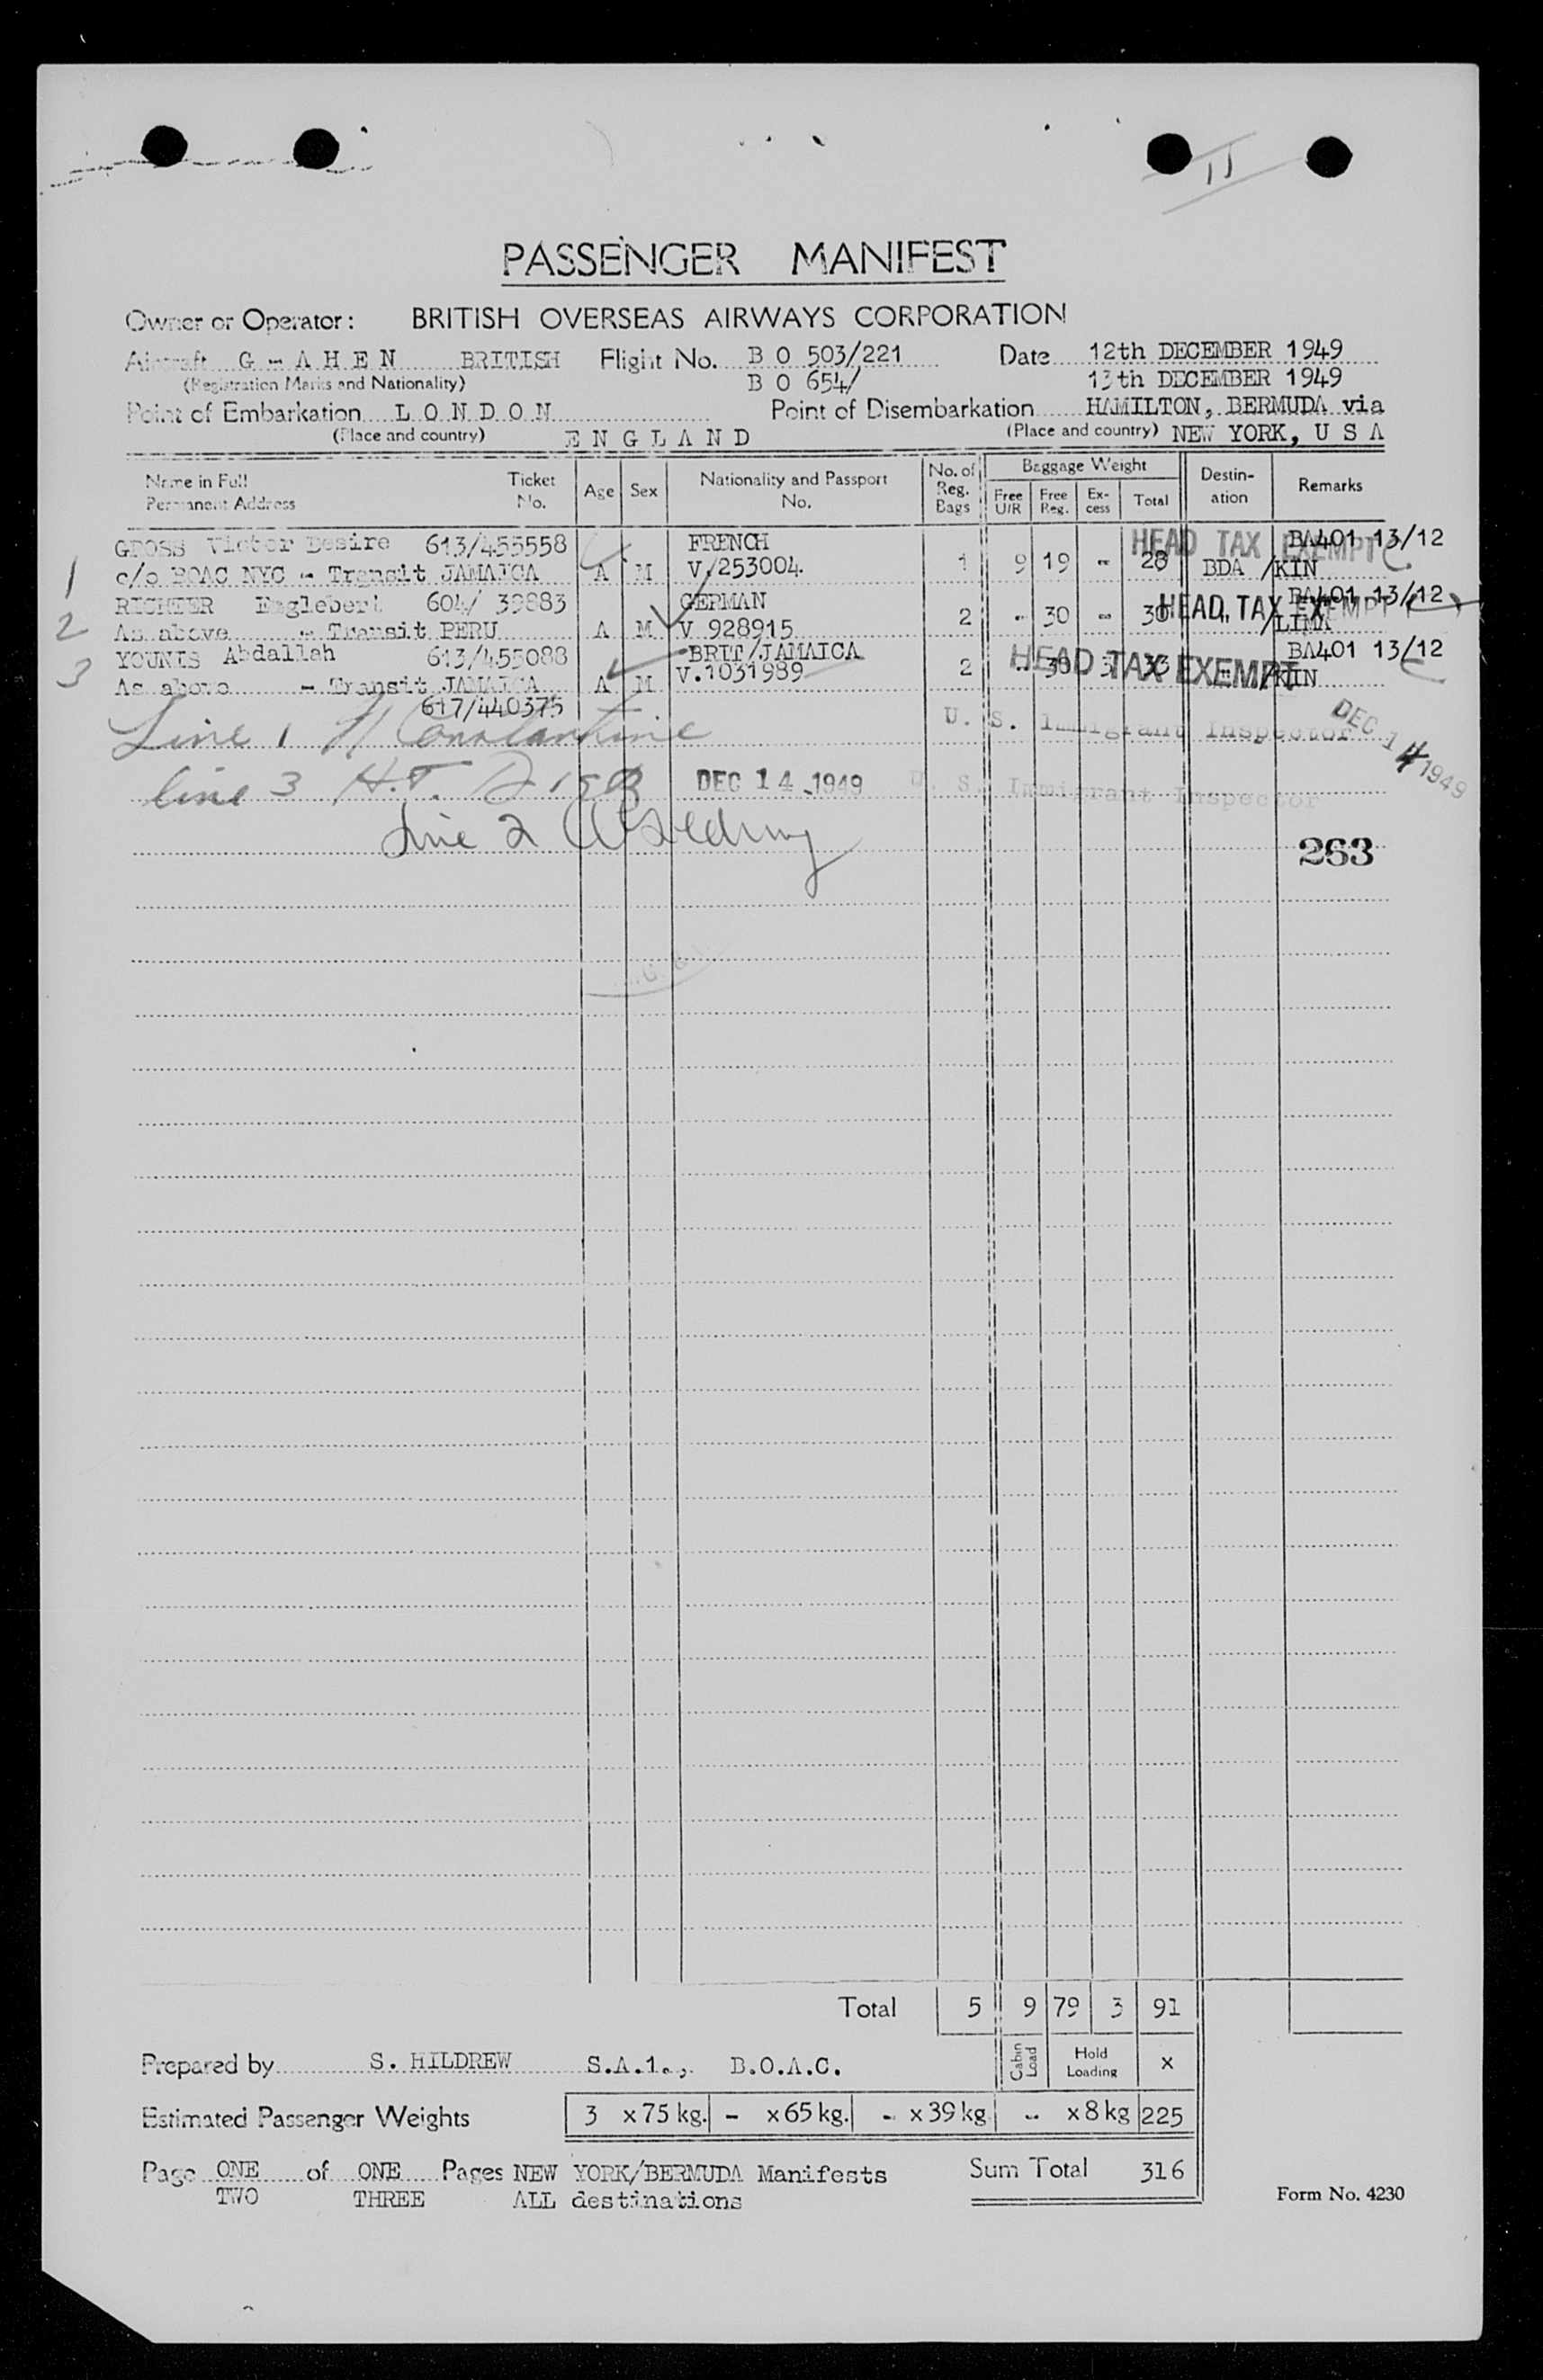 11
PASSENGER MANIFEST
Owner or Operator: BRITISH OVERSEAS AIRWAYS CORPORATION
Aircraft G - A H E N BRITISH Flight No. B O 503/221 Date 12th DECEMBER 1949
(Registration Marks and Nationality) B O 654/ 13th DECEMBER 1949
Point of Embarkation L O N D O N Point of Disembarkation HAMILTON, BERMUDA via
(Place and country) E N G L A N D (Place and country) NEW YORK, U S A
Name in Full Permanent Address Ticket No. Age Sex Nationality and Passport No. No. of Reg. Bags Baggage Weight Free U/R Free Reg. Ex-cess Total Destin-ation Remarks
GROSS Victor Desire 613/455558 FRENCH HEAD TAX EXEMPT BA401 13/12
1 c/o BOAC NYC - Transit JAMAICA A M V/253004. 1 9 19 - 28 BDA /KIN
RICHTER Englebert 604/ 39883 GERMAN HEAD TAX EXEMPT BA401 13/12
2 As above - Transit PERU A M V 928915 2 - 30 - 30 " /LIMA
YOUNIS Abdallah 613/455088 BRIT/JAMAICA HEAD TAX EXEMPT BA401 13/12
3 As above - Transit JAMAICA A M V.1031989 2 - 30 3 33 " /KIN
617/440375
Line 1 Constantine U. S. Immigrant Inspector DEC 14 1949
line 3 H.T. DEC 14 1949 U. S. Immigrant Inspector
Line 2
263
Total 5 9 79 3 91
Prepared by S. HILDREW S.A.1., B.O.A.C. Cabin Load Hold Loading x
Estimated Passenger Weights 3 x 75 kg. - x 65 kg. - x 39 kg. - x 8 kg 225
Page ONE of ONE Pages NEW YORK/BERMUDA Manifests Sum Total 316
TWO THREE ALL destinations Form No. 4230